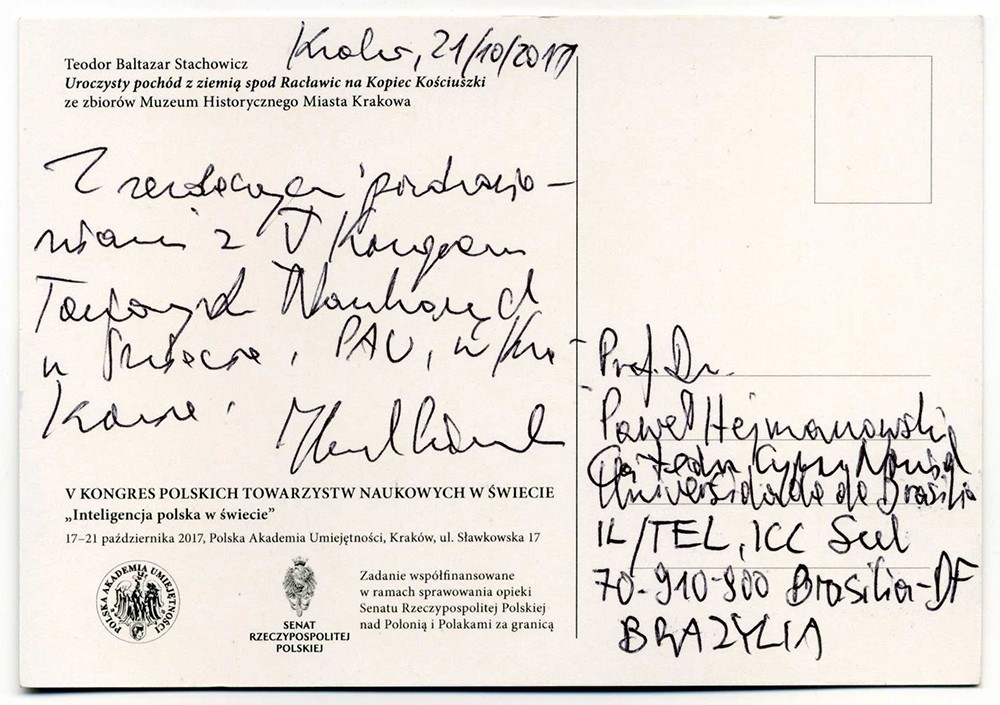 Kraków, 21/10/2017
Teodor Baltazar Stachowicz
Uroczysty pochód z ziemią spod Racławic na Kopiec Kościuszki
ze zbiorów Muzeum Historycznego Miasta Krakowa
Z serdecznymi pozdrowie-
niami z V Kongresu
Towarzystw Naukowych
w Świecie, PAU, w Kra-
kowie.
V KONGRES POLSKICH TOWARZYSTW NAUKOWYCH W ŚWIECIE
„Inteligencja polska w świecie”
17–21 października 2017, Polska Akademia Umiejętności, Kraków, ul. Sławkowska 17
POLSKA AKADEMIA UMIEJĘTNOŚCI
SENAT
RZECZYPOSPOLITEJ
POLSKIEJ
Zadanie współfinansowane
w ramach sprawowania opieki
Senatu Rzeczypospolitej Polskiej
nad Polonią i Polakami za granicą
Prof. Dr.
Paweł Hejmanowski
Cátedra Cyprian Norwid
Universidade de Brasília
IL/TEL, ICC Sul
70-910-900 Brasília-DF
BRAZYLIA